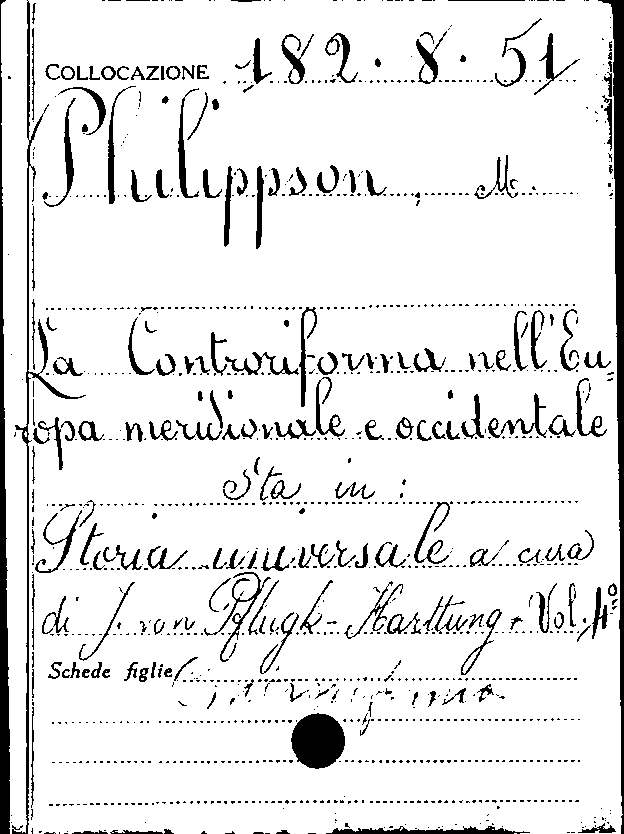 COLLOCAZIONE 182. 8. 51
Philippson, M.
La Controriforma nell'Eu=
ropa meridionale e occidentale
Sta in:
Storia universale a cura
di J. von Pflugk-Harttung. Vol. 4º
Schede figlie Controriforma